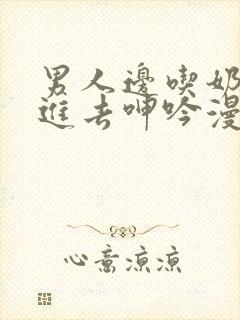 男人邊喫奶
進去呻吟漫
心意涼涼